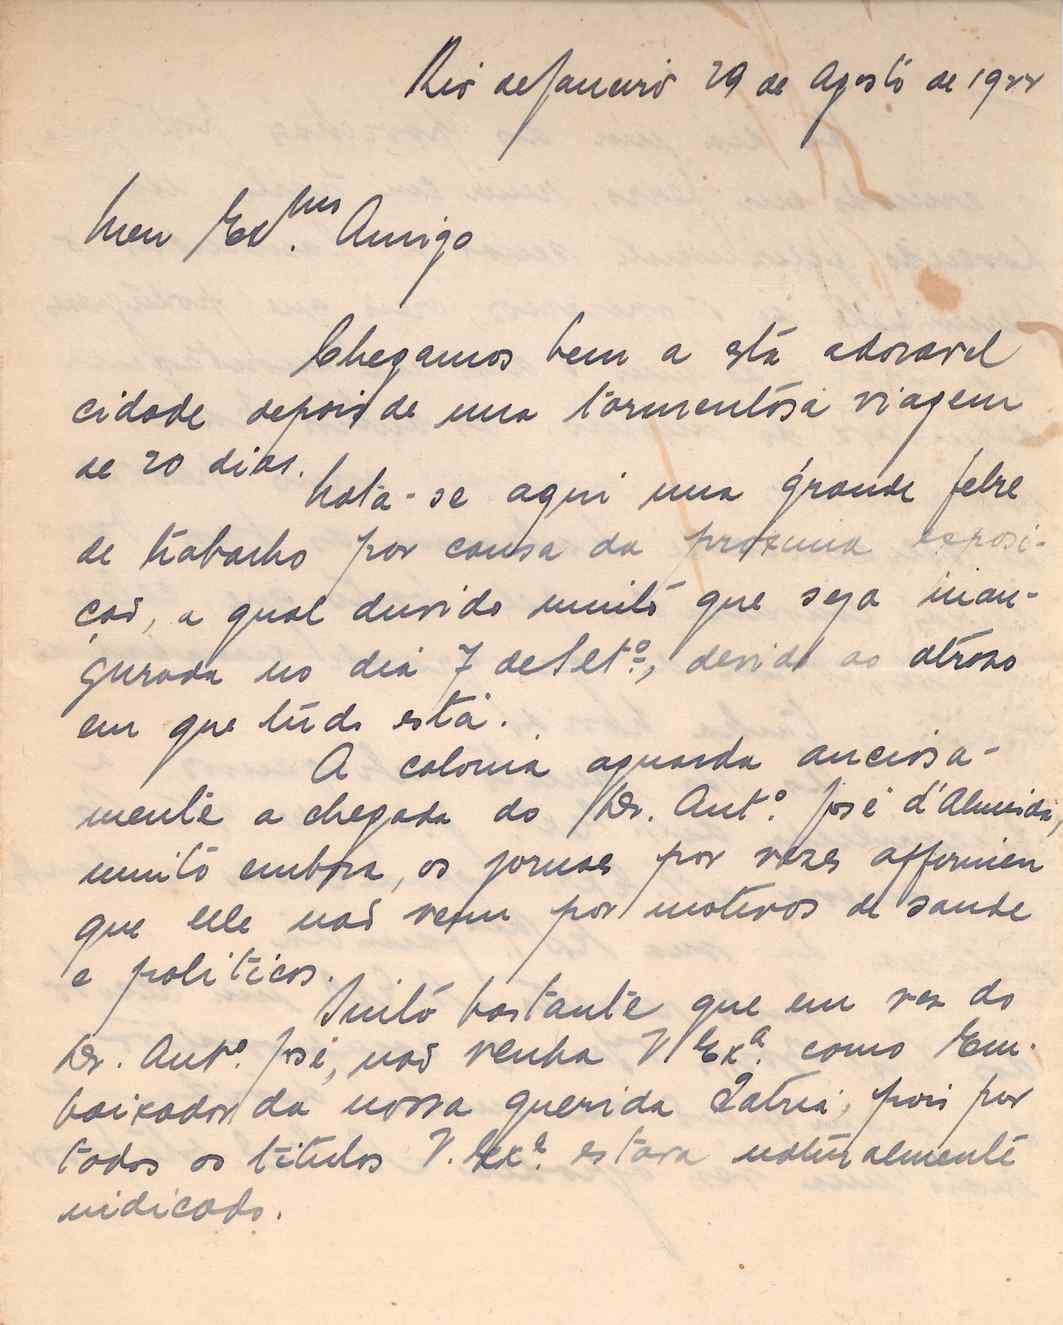 Rio de Janeiro 29 de Agosto de 1922
Meu Ex.mo Amigo
Chegamos bem a esta adoravel
cidade depois de uma tormentosa viagem
de 20 dias.
Nota-se aqui uma grande febre
de trabalho por causa da proxima exposi-
ção, a qual duvido muito que seja inau-
gurada no dia 7 de Set.o, devido ao atrazo
em que tudo está.
A colonia aguarda anciosa-
mente a chegada do Dr. Ant.o José d'Almeida,
muito embora, os jornaes por vezes affirmem
que elle não vem por motivos de saude
e politicos.
Sinto bastante que em vez do
Dr. Ant.o José, não venha V. Ex.a como Em-
baixador da nossa querida Patria, pois por
todos os titulos V. Ex.a estava naturalmente
indicado.